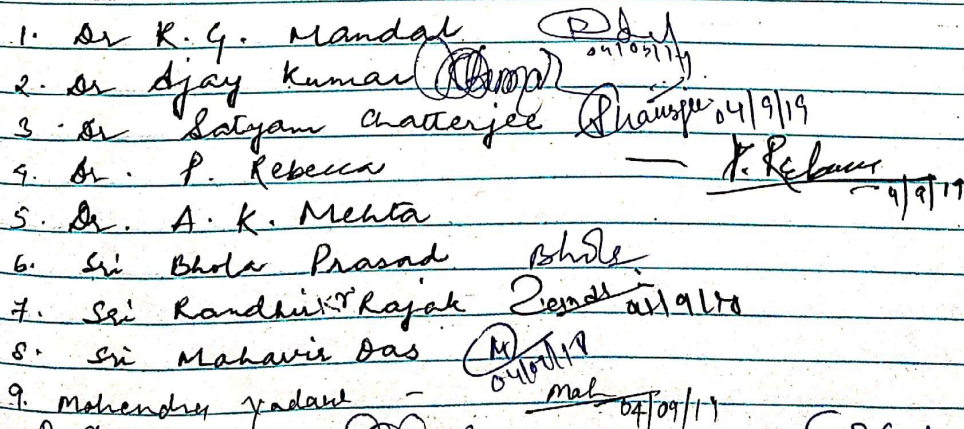 1. Dr K. G. Mandal 04/09/19
2. Dr Ajay Kumar
3. Dr Satyam Chatterjee 04/9/19
4. Dr. P. Rebecca — P. Rebecca 4/9/19
5. Dr. A. K. Mehta
6. Sri Bhola Prasad Bhola
7. Sri Randhir Kr Rajak
8. Sri Mahavir Das
9. Mahendra Yadav - Mah 04/09/19